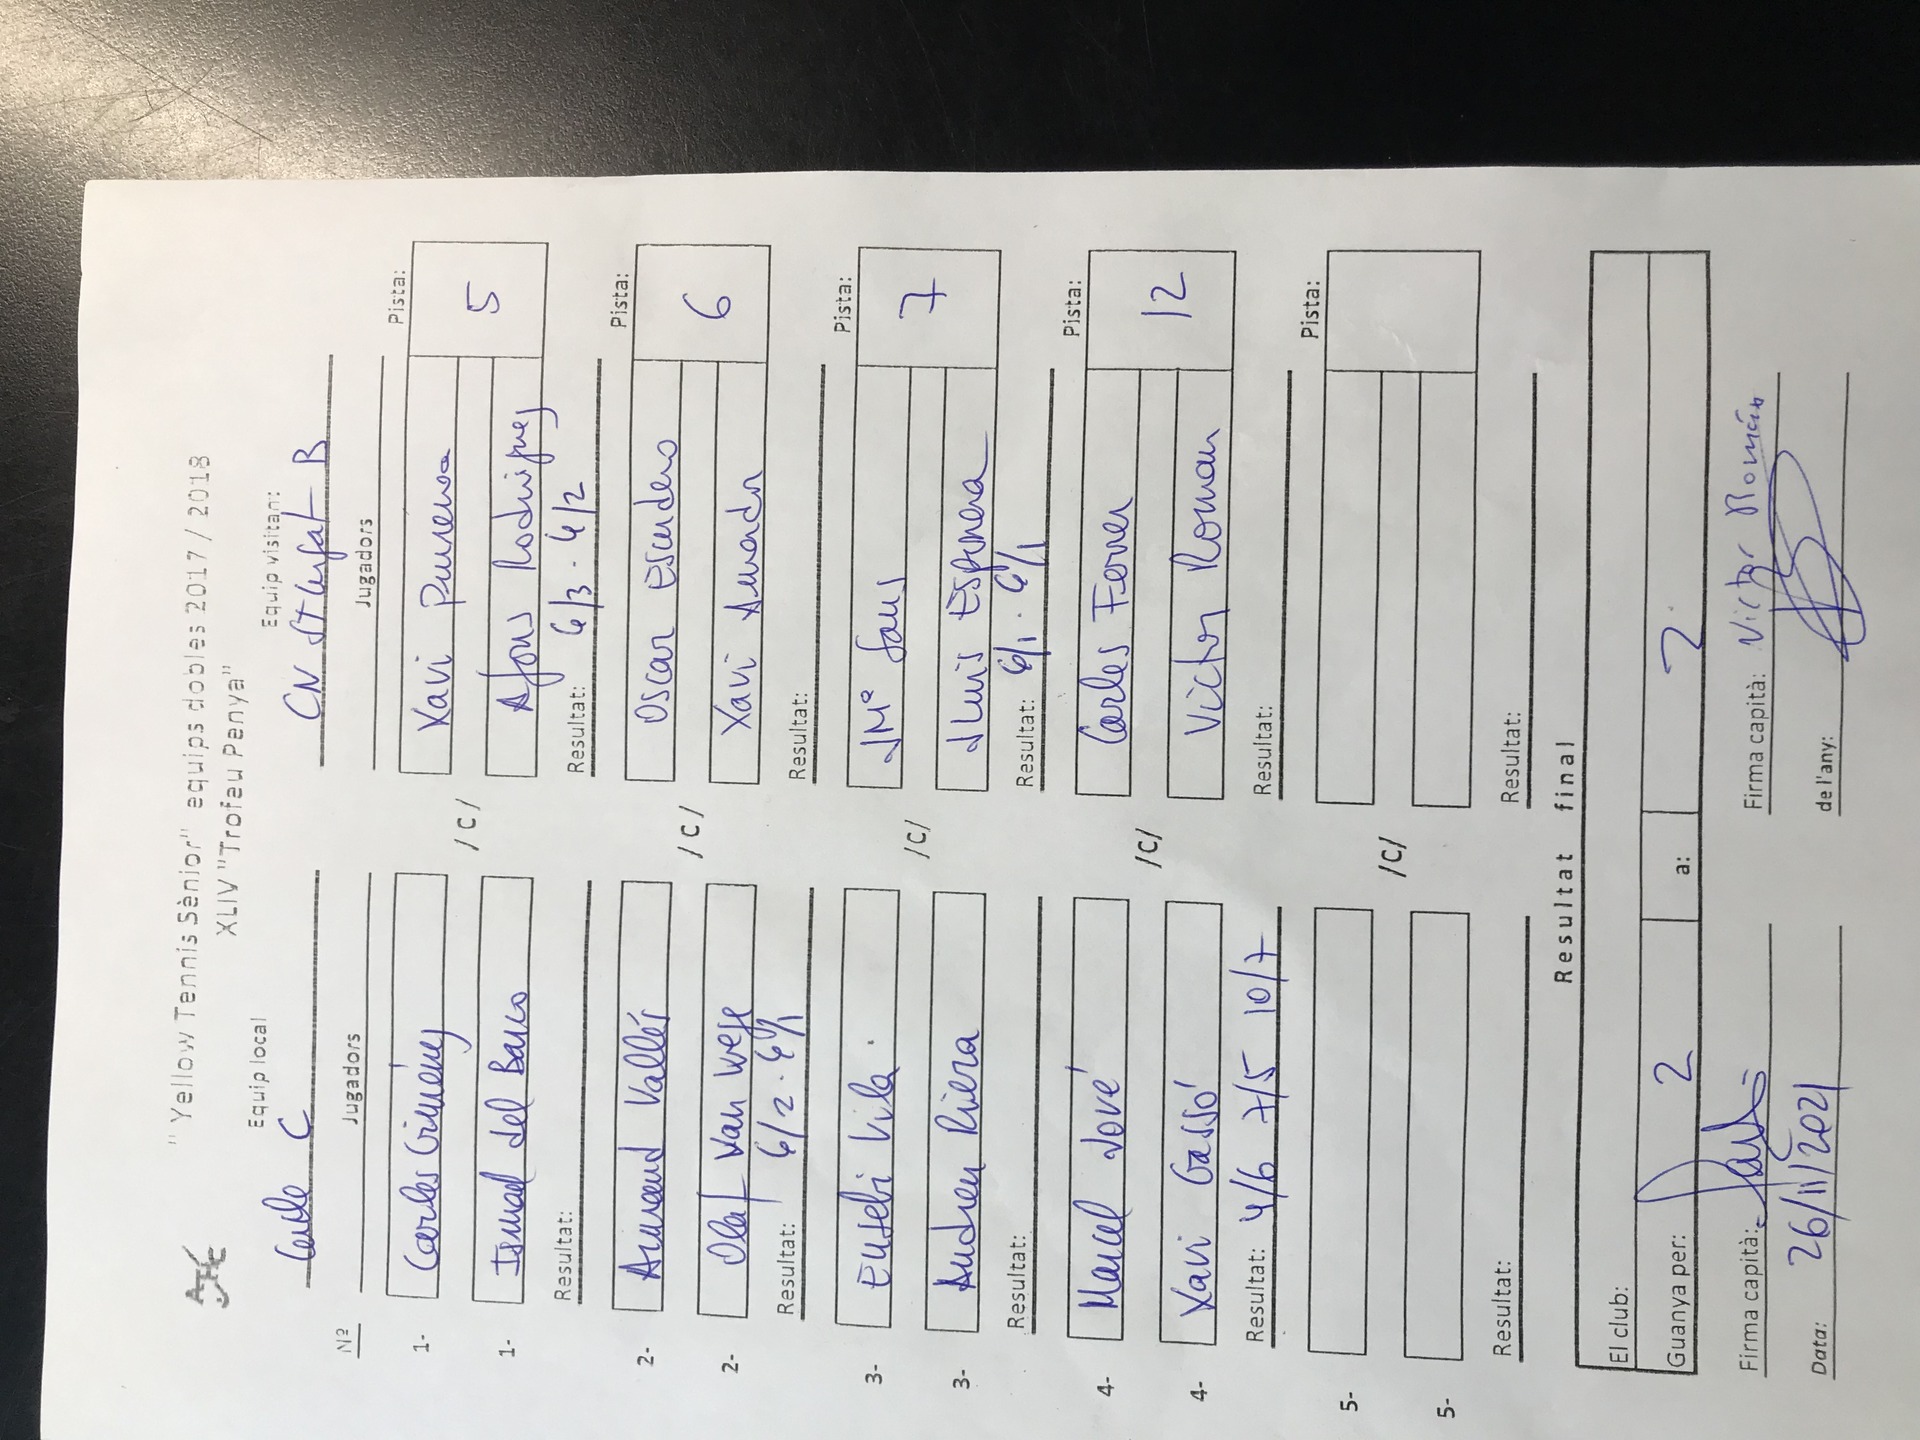 "Yellow Tennis Sènior" equips dobles 2017 / 2018
XLIV "Trofeu Penya"
Equip local Equip visitant:
C CN St Cugat B
Nº Jugadors Jugadors
Pista:
1- Carles Giménez /C/ Xavi 5
1- Ismael del Barco Afons Rodriguez
Resultat: Resultat: 6/3 - 6/2
Pista:
2- Armand Vallés /C/ Oscar Escudero 6
2- Olaf Van Wege Xavi Amador
Resultat: 6/2 - 6/1 Resultat:
Pista:
3- Eusebi Vila. /C/ JMª Sans 7
3- Andreu Riera Lluis Espinera
Resultat: Resultat: 6/1 - 6/1
Pista:
4- Marcel Jové /C/ Carles Ferrer 12
4- Xavi Gassó Victor Roman
Resultat: 4/6 7/5 10/7 Resultat:
Pista:
5- /C/
5-
Resultat: Resultat:
Resultat final
El club:
Guanya per: 2 a: 2
Firma capità: Firma capità: Victor Román
Data: 26/11/2021 de l'any: